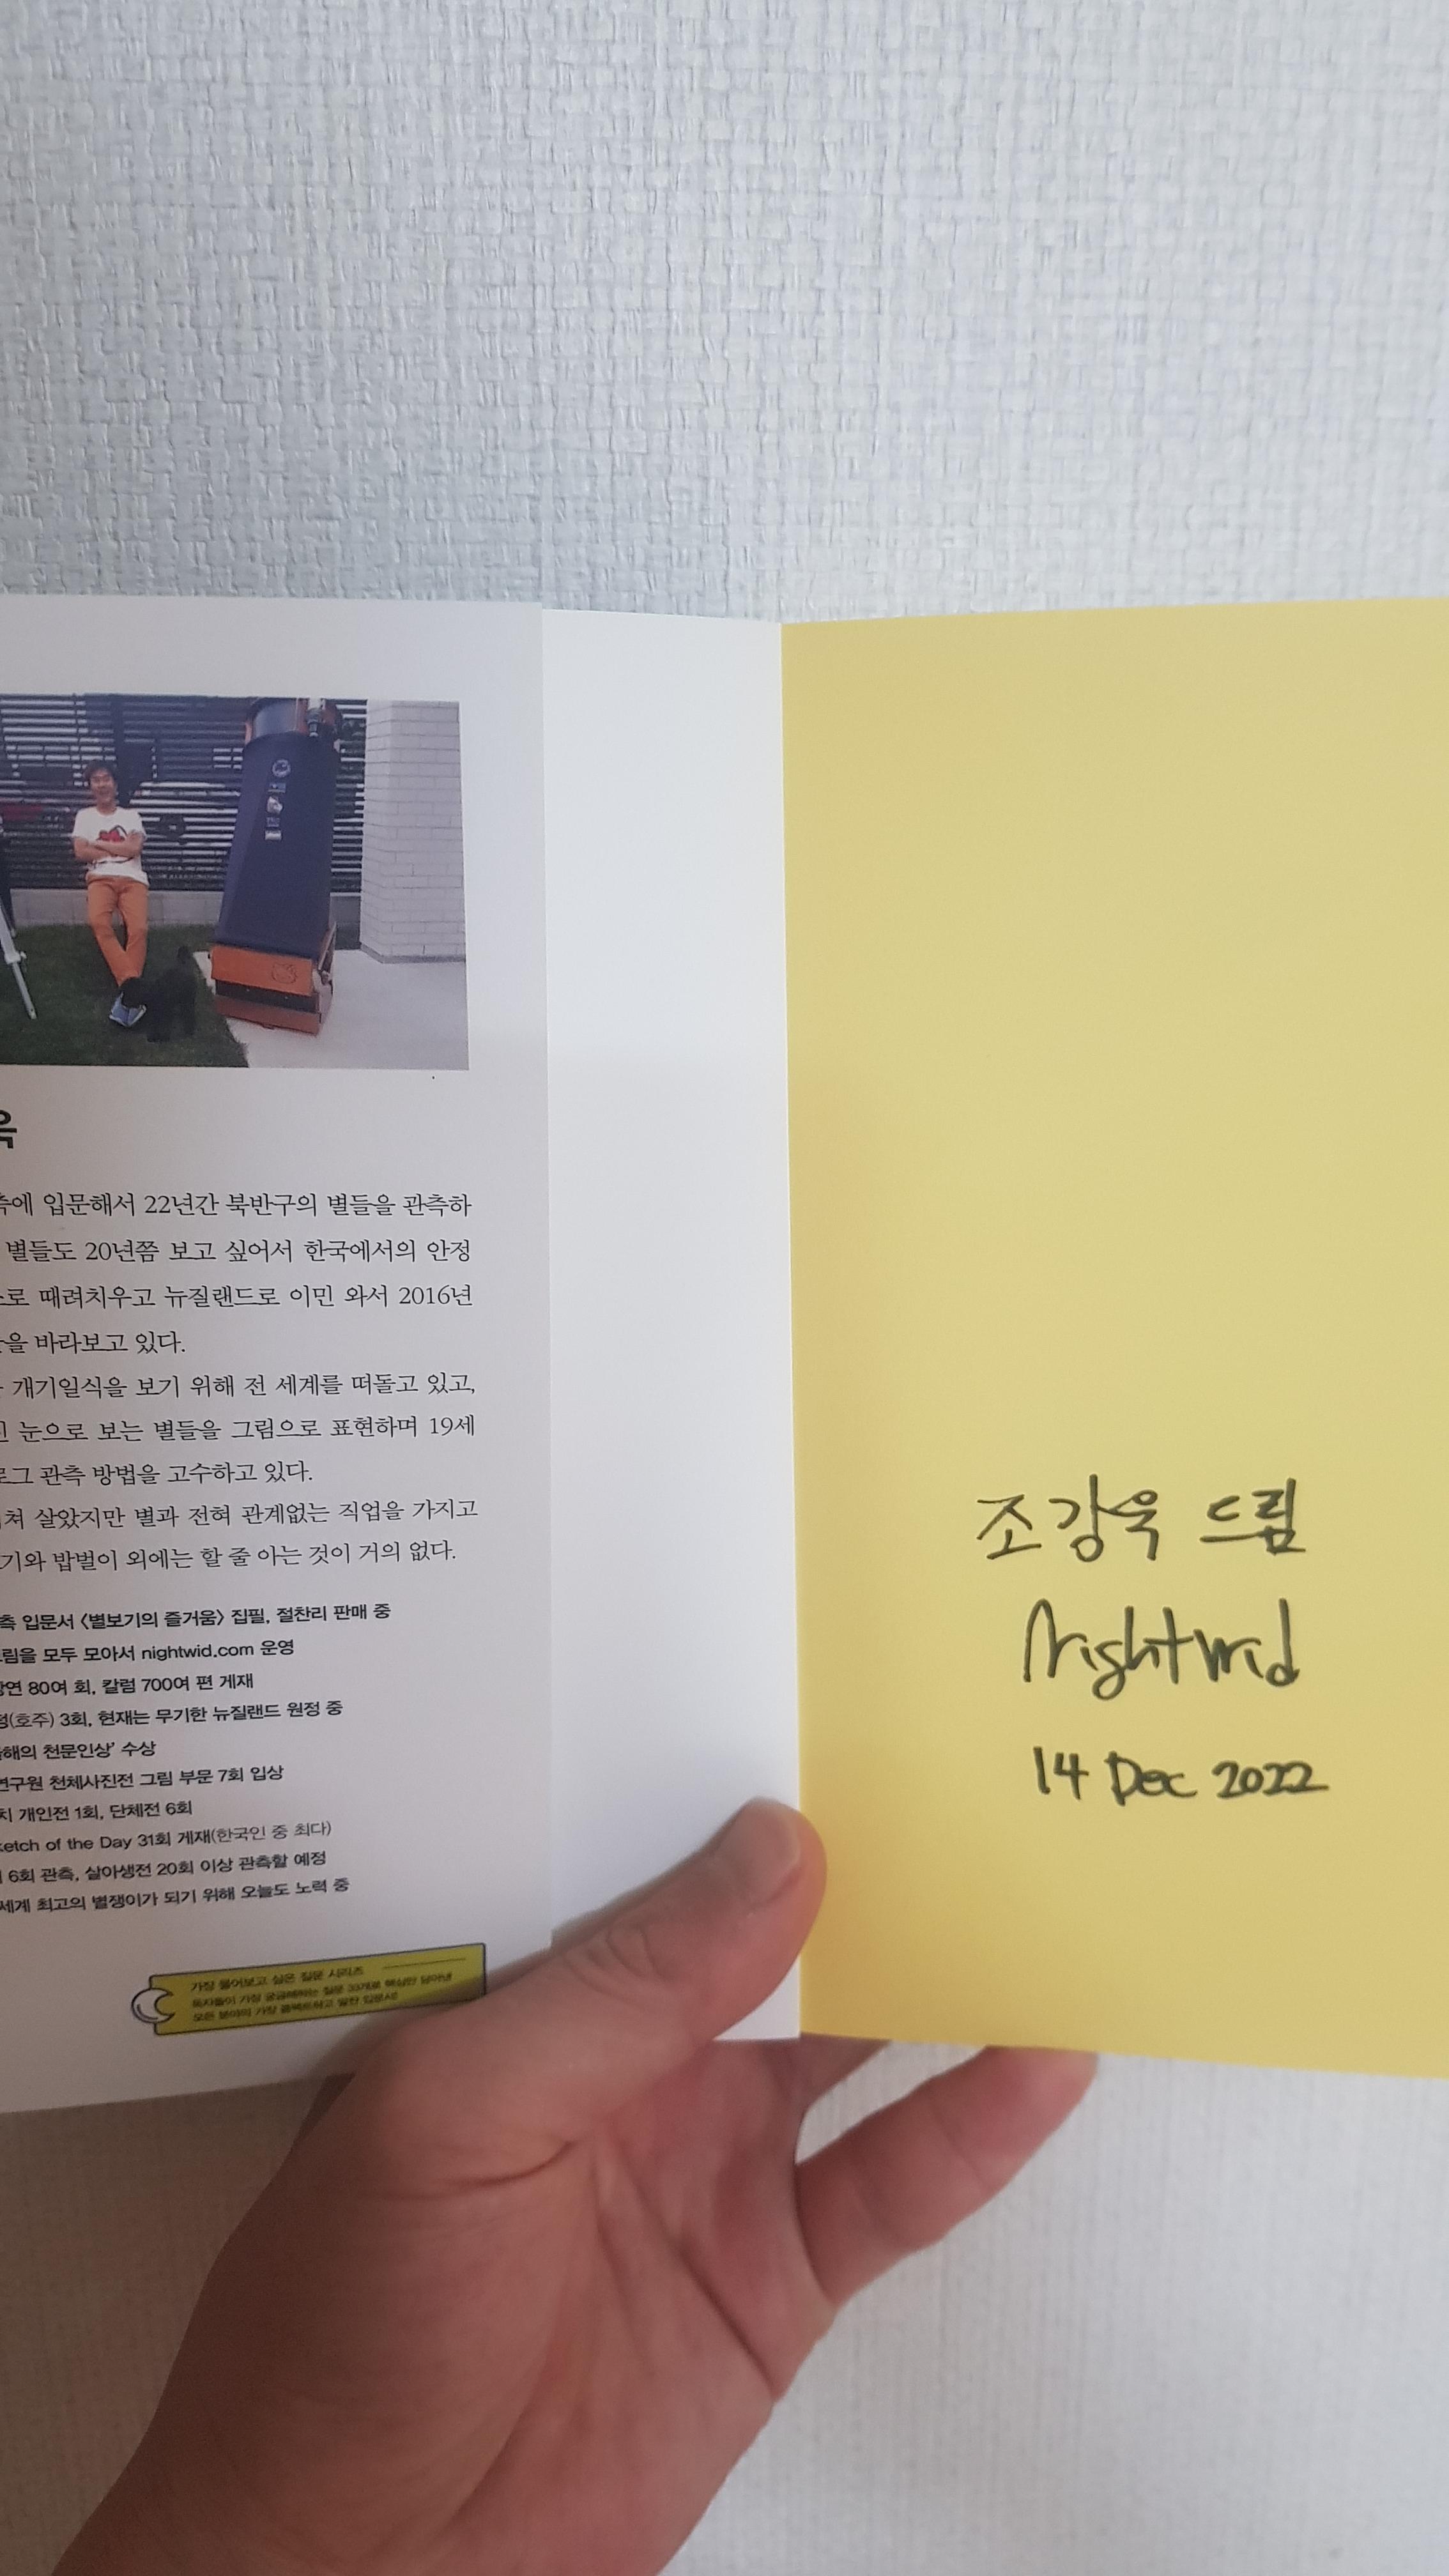 욱
측에 입문해서 22년간 북반구의 별들을 관측하
별들도 20년쯤 보고 싶어서 한국에서의 안정
로 때려치우고 뉴질랜드로 이민 와서 2016년
을 바라보고 있다.
개기일식을 보기 위해 전 세계를 떠돌고 있고,
눈으로 보는 별들을 그림으로 표현하며 19세
로그 관측 방법을 고수하고 있다.
쳐 살았지만 별과 전혀 관계없는 직업을 가지고
기와 밥벌이 외에는 할 줄 아는 것이 거의 없다.
측 입문서 〈별보기의 즐거움〉 집필, 절찬리 판매 중
림을 모두 모아서 nightwid.com 운영
강연 80여 회, 칼럼 700여 편 게재
정(호주) 3회, 현재는 무기한 뉴질랜드 원정 중
해의 천문인상’ 수상
연구원 천체사진전 그림 부문 7회 입상
치 개인전 1회, 단체전 6회
ketch of the Day 31회 게재(한국인 중 최다)
6회 관측, 살아생전 20회 이상 관측할 예정
세계 최고의 별쟁이가 되기 위해 오늘도 노력 중
가장 물어보고 싶은 질문 시리즈
독자들이 가장 궁금해하는 질문 33개로 핵심만 담아낸
모든 분야의 가장 콤팩트하고 알찬 입문서!
조강욱 드림
Nightwid
14 Dec 2022